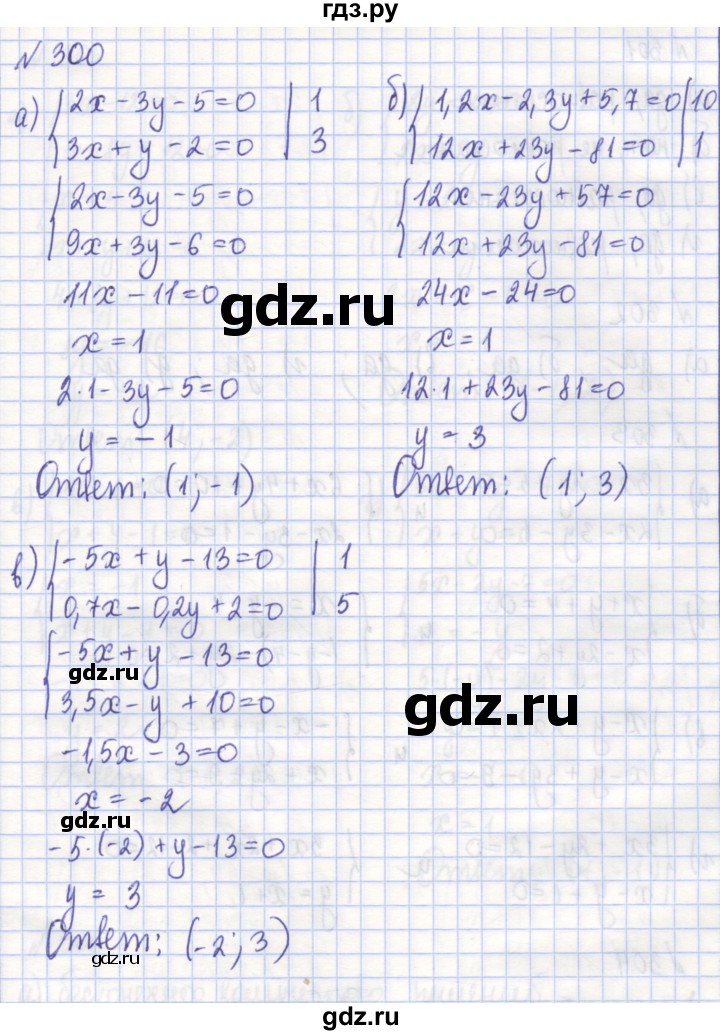 гдз.ру
№ 300
а) { 2x - 3y - 5 = 0 | 1
3x + y - 2 = 0 | 3
{ 2x - 3y - 5 = 0
9x + 3y - 6 = 0
11x - 11 = 0
x = 1
2·1 - 3y - 5 = 0
y = -1
Ответ: (1; -1)
б) { 1,2x - 2,3y + 5,7 = 0 | 10
12x + 23y - 81 = 0 | 1
{ 12x - 23y + 57 = 0
12x + 23y - 81 = 0
24x - 24 = 0
x = 1
12·1 + 23y - 81 = 0
y = 3
Ответ: (1; 3)
gdz.ru
в) { -5x + y - 13 = 0 | 1
0,7x - 0,2y + 2 = 0 | 5
{ -5x + y - 13 = 0
gdz.ru
3,5x - y + 10 = 0
gdz.ru
-1,5x - 3 = 0
x = -2
gdz.ru
-5·(-2) + y - 13 = 0
y = 3
Ответ: (-2; 3)
gdz.ru
гдз.ру